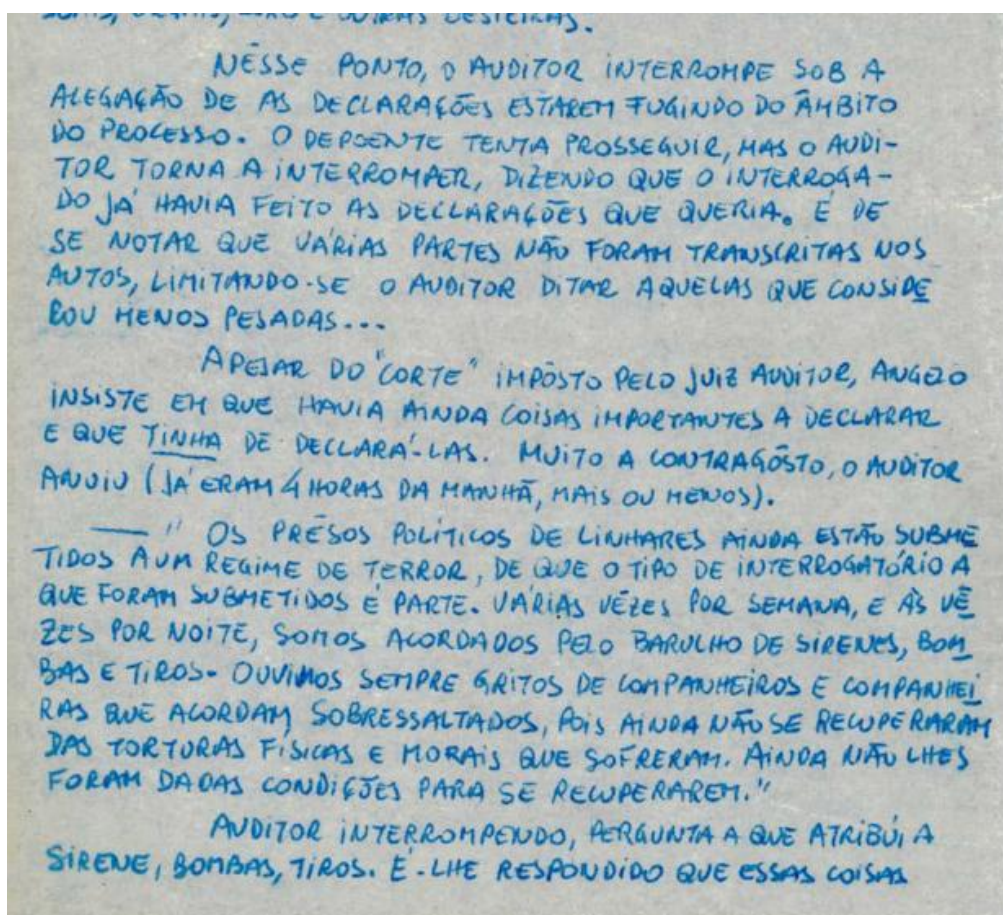 NÊSSE PONTO, O AUDITOR INTERROMPE SOB A
ALEGAÇÃO DE AS DECLARAÇÕES ESTAREM FUGINDO DO ÂMBITO
DO PROCESSO. O DEPOENTE TENTA PROSSEGUIR, MAS O AUDI-
TOR TORNA A INTERROMPER, DIZENDO QUE O INTERROGA-
DO JÁ HAVIA FEITO AS DECLARAÇÕES QUE QUERIA. É DE
SE NOTAR QUE VÁRIAS PARTES NÃO FORAM TRANSCRITAS NOS
AUTOS, LIMITANDO-SE O AUDITOR DITAR AQUELAS QUE CONSIDE
ROU MENOS PESADAS...
APESAR DO "CORTE" IMPÔSTO PELO JUIZ AUDITOR, ANGELO
INSISTE EM QUE HAVIA AINDA COISAS IMPORTANTES A DECLARAR
E QUE TINHA DE DECLARÁ-LAS. MUITO A CONTRAGÔSTO, O AUDITOR
ANUIU (JÁ ERAM 4 HORAS DA MANHÃ, MAIS OU MENOS).
— " OS PRÊSOS POLÍTICOS DE LINHARES AINDA ESTÃO SUBME
TIDOS A UM REGIME DE TERROR, DE QUE O TIPO DE INTERROGATÓRIO A
QUE FORAM SUBMETIDOS É PARTE. VÁRIAS VÊZES POR SEMANA, E ÀS VÊ
ZES POR NOITE, SOMOS ACORDADOS PELO BARULHO DE SIRENES, BOM
BAS E TIROS. OUVIMOS SEMPRE GRITOS DE COMPANHEIROS E COMPANHEI
RAS QUE ACORDAM SOBRESSALTADOS, POIS AINDA NÃO SE RECUPERARAM
DAS TORTURAS FÍSICAS E MORAIS QUE SOFRERAM. AINDA NÃO LHES
FORAM DADAS CONDIÇÕES PARA SE RECUPERAREM."
AUDITOR INTERROMPENDO, PERGUNTA A QUE ATRIBÚI A
SIRENE, BOMBAS, TIROS. É-LHE RESPONDIDO QUE ESSAS COISAS